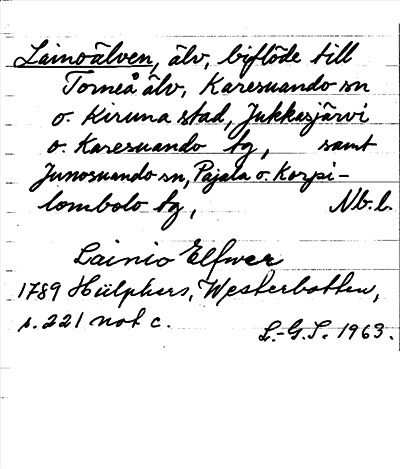 Lainoälven, älv, biflöde till
Torneå älv, Karesuando sn
o. Kiruna stad, Jukkasjärvi
o. Karesuando tg, samt
Junosuando sn, Pajala o. Korpi-
lombolo tg, Nb. l.
Lainio Elfwer
1789 Hülphers, Westerbotten,
s. 221 not c.
L.-G.S. 1963.